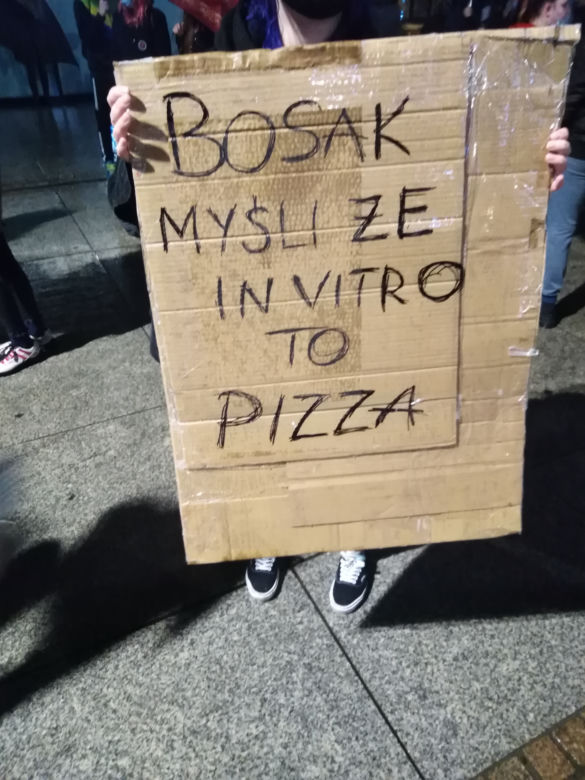 BOSAK
MYŚLI ŻE
IN VITRO
TO
PIZZA